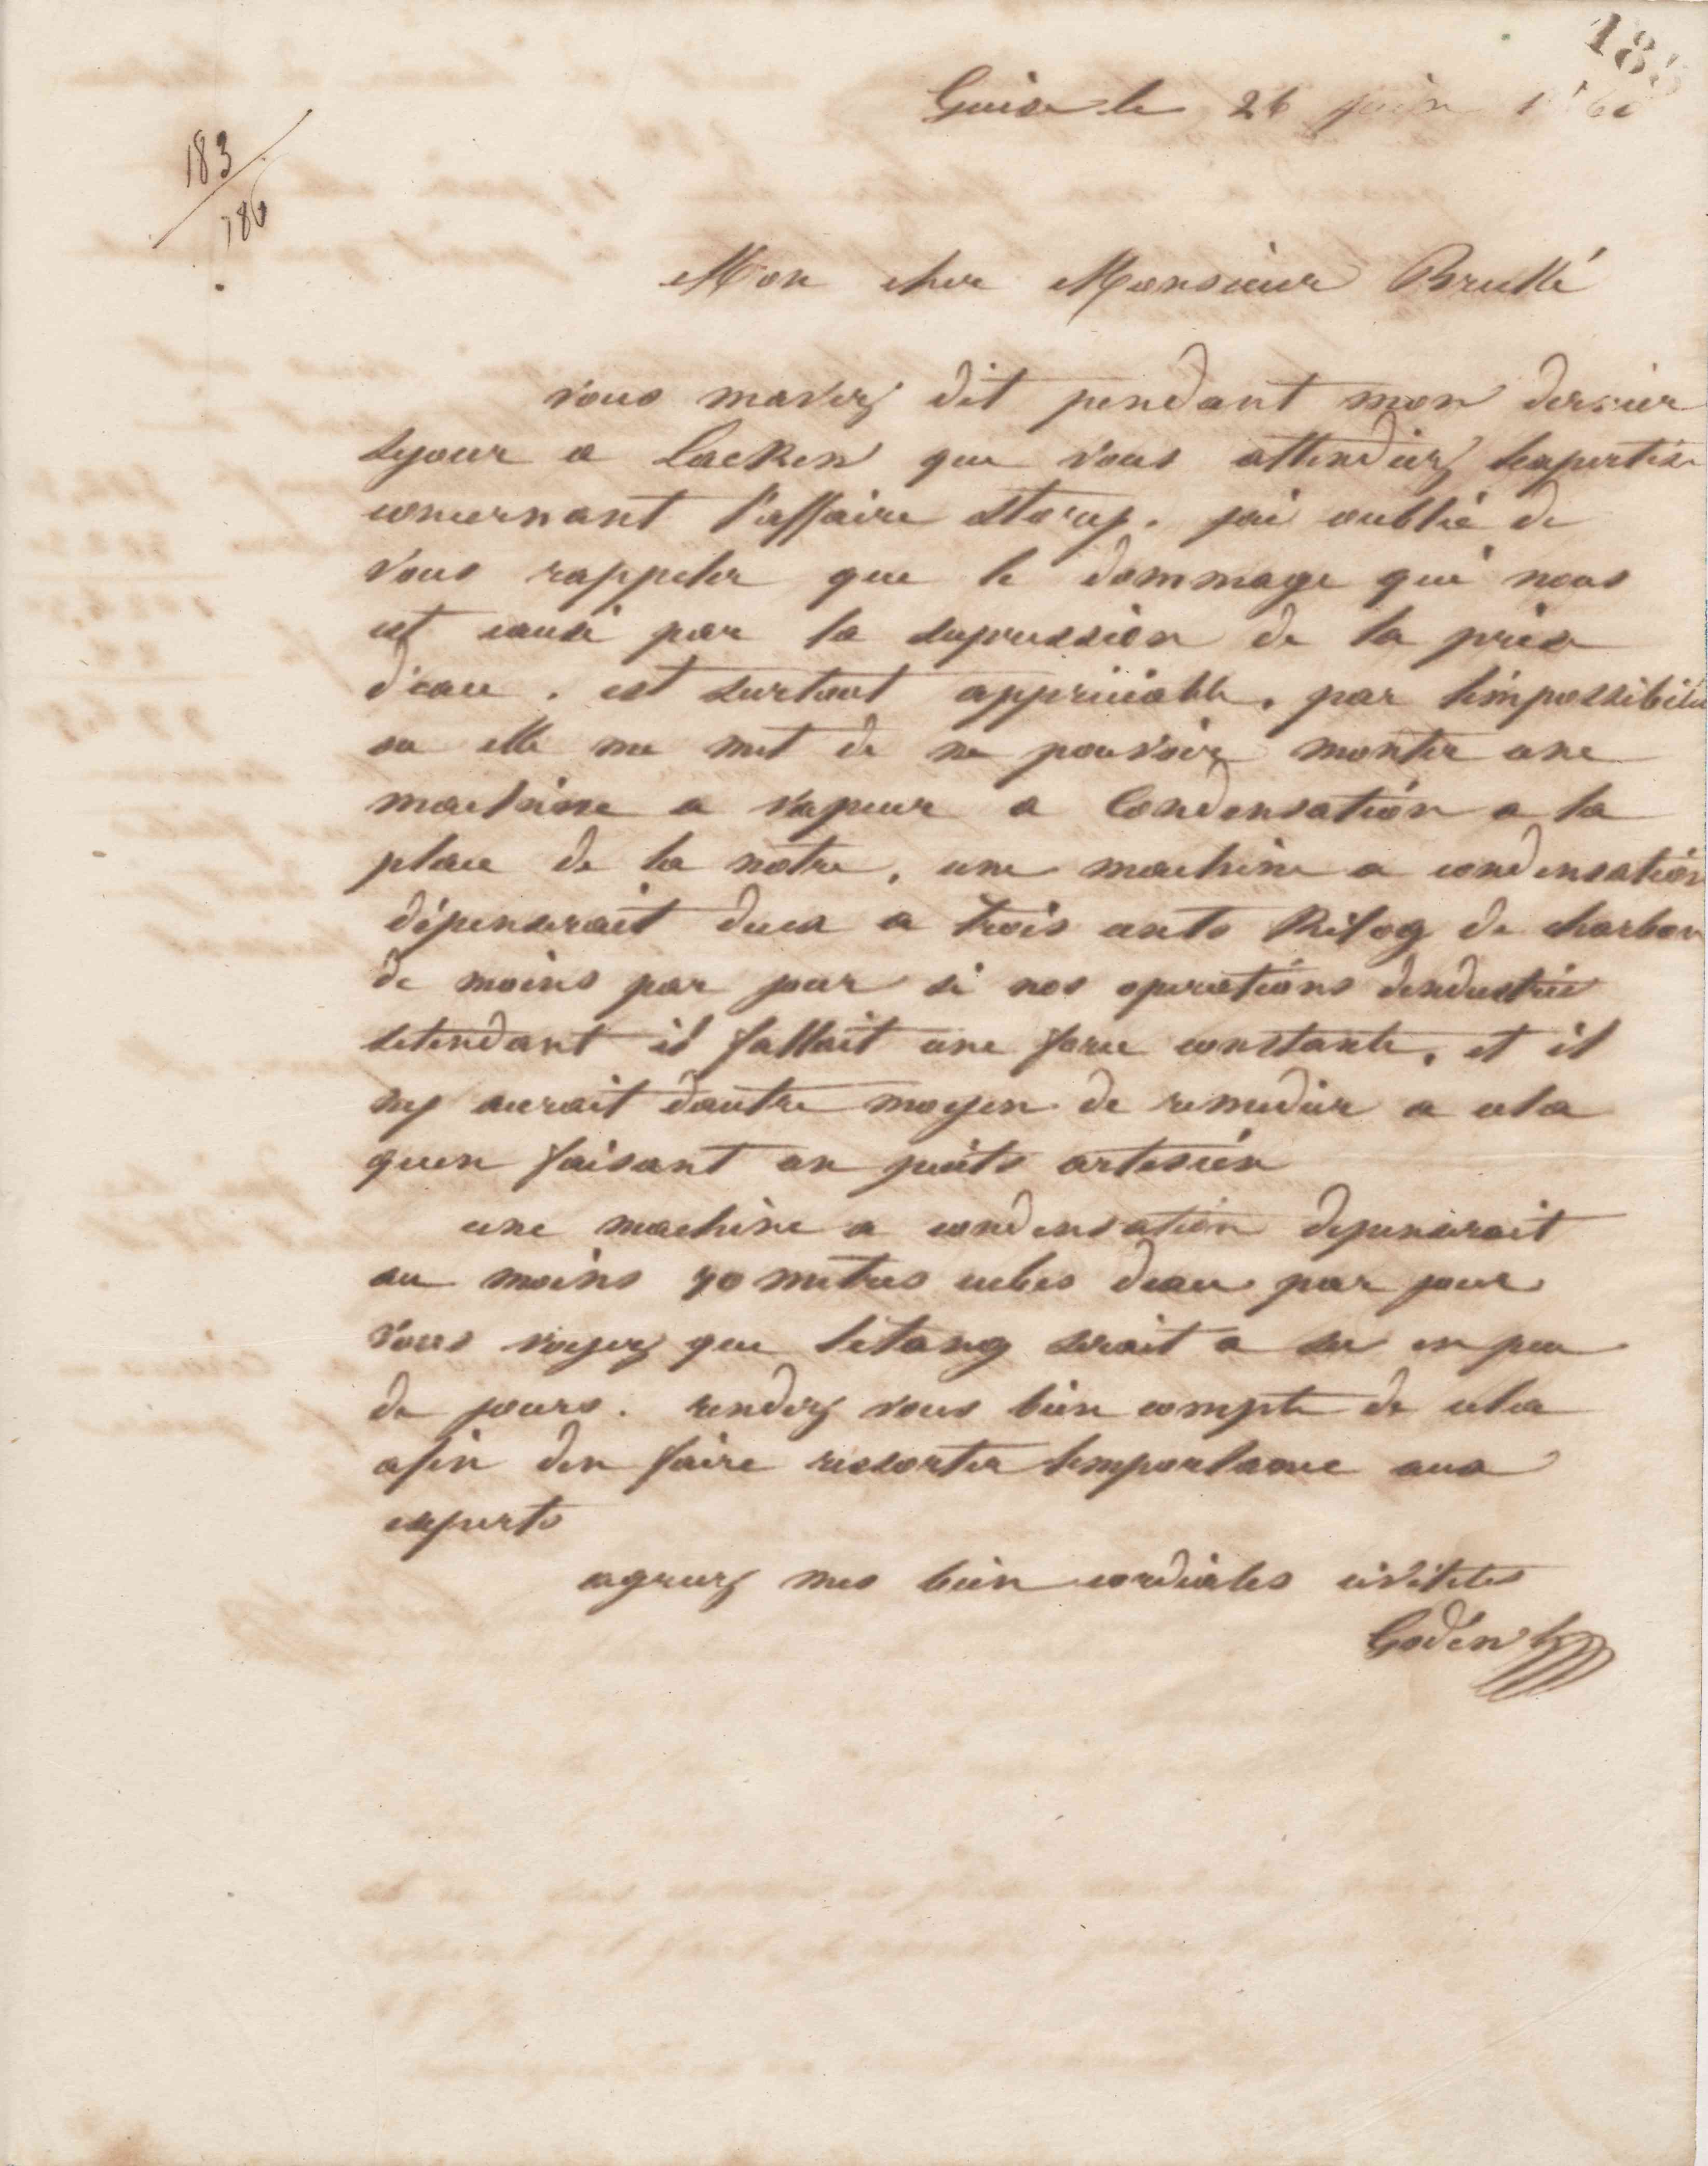 185
Guise le 26 juin 1860
183
186
Mon cher Monsieur Brullé
vous mavez dit pendant mon dernier
sejour a Lacken que vous attendiez lexpertise
concernant l'affaire Storup. jai oublié de
vous rappeler que le dommage qui nous
est causé par la supression de la prise
d'eau. est surtout appréciable. par limpossibilité
ou elle me met de ne pouvoir monter une
machine a vapeur a Condensation a la
place de la notre. une machine a condensation
dépenserait deux a trois cents Kilog de charbon
de moins par jour si nos operations dindustrie
setendant il fallait une force constante. et il
ny aurait dautre moyen de remedier a cela
quen faisant un puits artesien
une machine a condensation depenserait
au moins 90 metres cubes deau par jour
vous voyez que letang serait a sec en peu
de jours. rendez vous bien compte de cela
afin den faire ressortir limportance aux
experts
agreez mes bien cordiales civilites
Godin